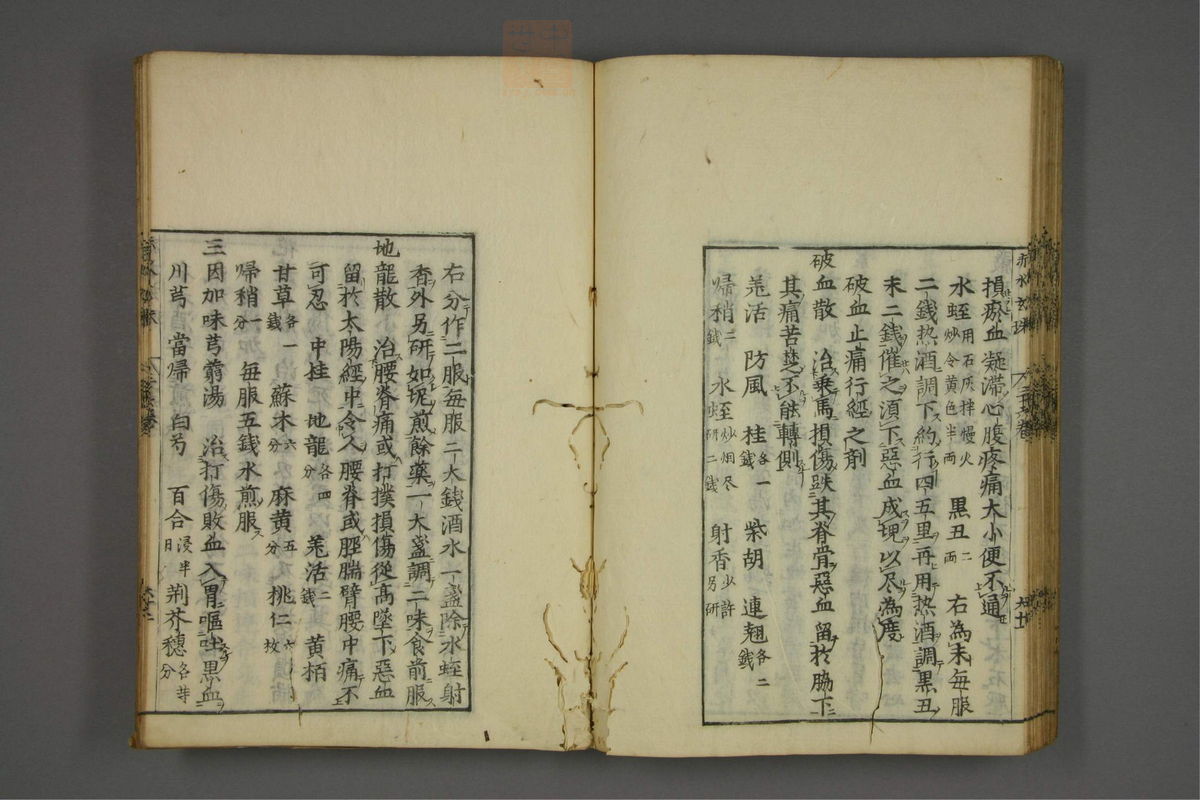 損瘀血凝滞心腹疼痛大小便不通
水蛭用石灰拌慢火炒令黄色半両 黒丑二両 右為末毎服
二銭热酒調下約行四五里再用热酒調黒丑
末二銭催之須下惡血成塊以尽為度
破血止痛行經之剤
破血散 治乗馬損傷跌其脊骨惡血留於脇下
其痛苦楚不能轉側
羗活 防風 桂各一銭 柴胡 連翹各二銭
帰稍二銭 水蛭炒烟尽研二銭 射香少許另研
右分作二服毎服二大銭酒水一盞除水蛭射
香外另研如泥煎餘藥一大盞調二味食前服
地龍散 治腰脊痛或打撲損傷從高墜下惡血
留於太陽經中令人腰脊或脛腨臂腰中痛不
可忍 中桂 地龍各四分 羗活二銭 黄栢
甘草各一銭 蘇木六分 麻黄五分 桃仁六枚
帰稍一分 毎服五銭水煎服
三因加味芎藭湯 治打傷敗血入胃嘔吐黒血
川芎 當帰 白芍 百合浸半日 荆芥穗各等分